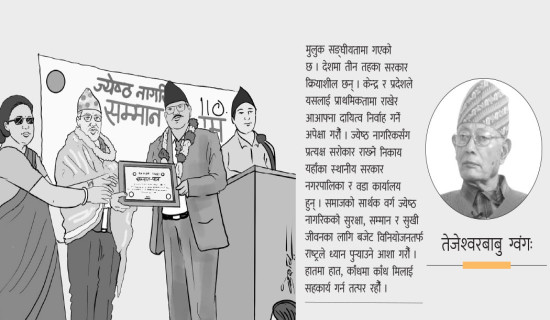 ज्येष्ठ नागरि
सम्मान
मुलुक सङ्घीयतामा गएको
छ । देशमा तीन तहका सरकार
क्रियाशील छन् । केन्द्र र प्रदेशले
यसलाई प्राथमिकतामा राखेर
आआफ्ना दायित्व निर्वाह गर्ने
अपेक्षा गरौँ । ज्येष्ठ नागरिकसँग
प्रत्यक्ष सरोकार राख्ने निकाय
यहाँका स्थानीय सरकार
नगरपालिका र वडा कार्यालय
हुन् । समाजको सार्थक वर्ग ज्येष्ठ
नागरिकको सुरक्षा, सम्मान र सुखी
जीवनका लागि बजेट विनियोजनतर्फ
राष्ट्रले ध्यान पुर्‍याउने आशा गरौँ ।
हातमा हात, काँधमा काँध मिलाई
सहकार्य गर्न तत्पर रहौँ ।
तेजेश्वरबाबु ग्वंगः